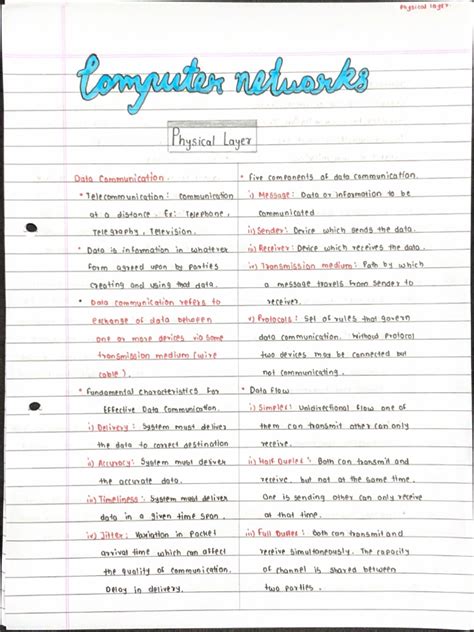 Physical layer
Computer networks
Physical Layer
Data Communication.
* Telecommunication: communication
at a distance. Ex: Telephone,
Telegraphy, Television.
* Data is information in whatever
form agreed upon by parties
creating and using that data.
* Data communication refers to
exchange of data between
one or more devices via some
transmission medium (wire
cable).
* Fundamental characteristics for
Effective Data Communication.
i) Delivery: System must deliver
the data to correct destination
ii) Accuracy: System must deliver
the accurate data.
iii) Timeliness: System must deliver
data in a given time span.
iv) Jitter: Variation in Packet
arrival time which can affect
the quality of communication.
Delay in delivery.
* Five components of data communication.
i) Message: Data or information to be
communicated
ii) Sender: Device which sends the data.
iii) Receiver: Device which receives the data.
iv) Transmission medium: Path by which
a message travels from sender to
receiver.
v) Protocols: Set of rules that govern
data communication. Without Protocol
two devices may be connected but
not communicating.
* Data Flow
i) Simplex: Unidirectional flow one of
them can transmit other can only
receive.
ii) Half Duplex: Both can transmit and
receive, but not at the same time.
One is sending other can only receive
at that time.
iii) Full Duplex: Both can transmit and
receive simultaneously. The capacity
of channel is shared between
two parties.